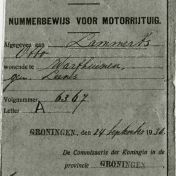 NUMMERBEWIJS VOOR MOTORRIJTUIG.
Afgegeven aan Lammerts
Otto
wonende te Warfhuizen
gem. Leens
Volgnummer 6367
Letter A
GRONINGEN, den 24 September 1930.
De Commissaris der Koningin in de
provincie GRONINGEN